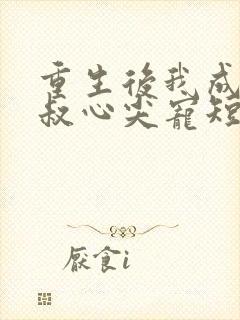 重生後我成
叔心尖寵短
厭食i